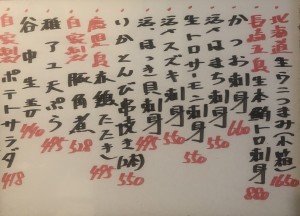 北海道 生ウニつまみ(小箱) 1650
長崎五島 生本鮪トロ刺身 880
かつお刺身 660
生トロサーモン刺身 550
活〆スズキ刺身 550
活ほっき貝刺身 495
いかとんび串焼き(2本) 550
鹿児島 赤鶏たたき 495
自家製 豚角煮 518
稚アユ天ぷら 495
谷中生姜 440
自家製 ポテトサラダ 418